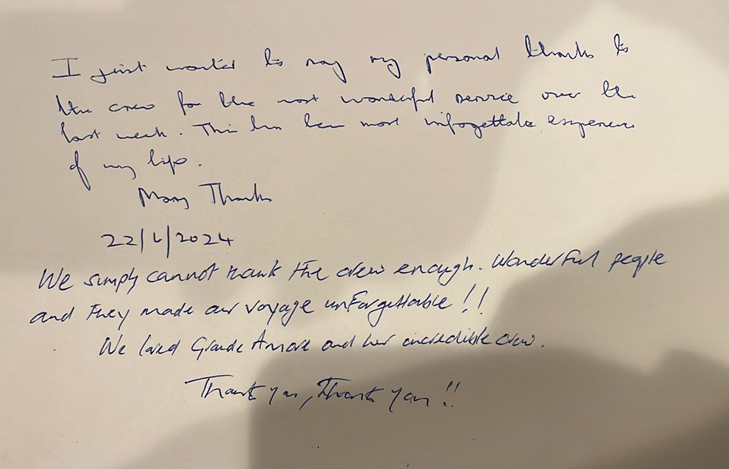 I just wanted to say my personal thanks to
the crew for the most wonderful service over the
last week. This has been most unforgettable experience
of my life.
Many Thanks
22/6/2024
We simply cannot thank the crew enough. Wonderful people
and they made our voyage unforgettable!!
We loved Grande Amore and her incredible crew.
Thank you, Thank you!!